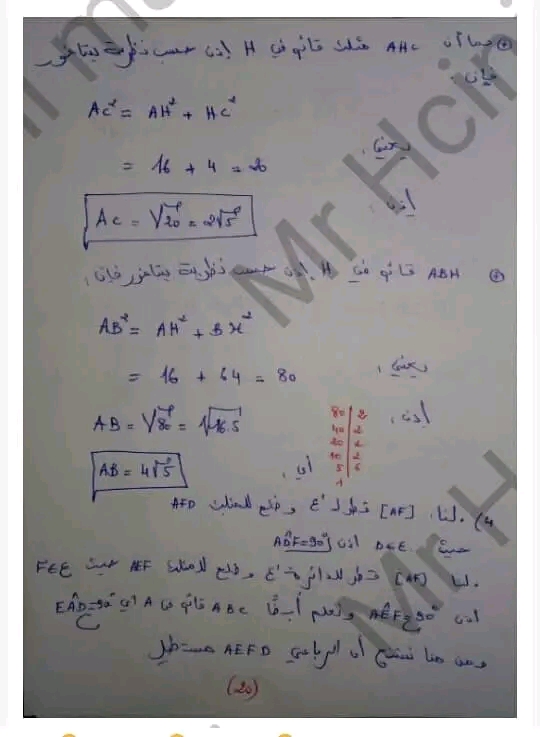 ⊕ بما أن AHC مثلث قائم في H إذن حسب نظرية بيتاغور
فإن:
AC² = AH² + HC²
يعني:
= 16 + 4 = 20
إذن:
AC = √20 = 2√5
⊕ ABH قائم في H إذن حسب نظرية بيتاغور فإن:
AB² = AH² + BH²
يعني:
= 16 + 64 = 80
إذن:
AB = √80 = √16.5
80 | 2
40 | 2
20 | 2
10 | 2
5 | 5
1
أي:
AB = 4√5
4) لنا: [AF] قطر لـ ع و ضلع للمثلث AFD
حيث D∈ع إذن AD̂F=90°
لنا [AF] قطر للدائرة ع و ضلع للمثلث AEF حيث F∈ع
إذن AÊF=90° ونعلم أيضا ABC قائم في A أي EÂD=90°
ومن هنا نستنتج أن الرباعي AEFD مستطيل
(20)
Mr Hcin
Mr H